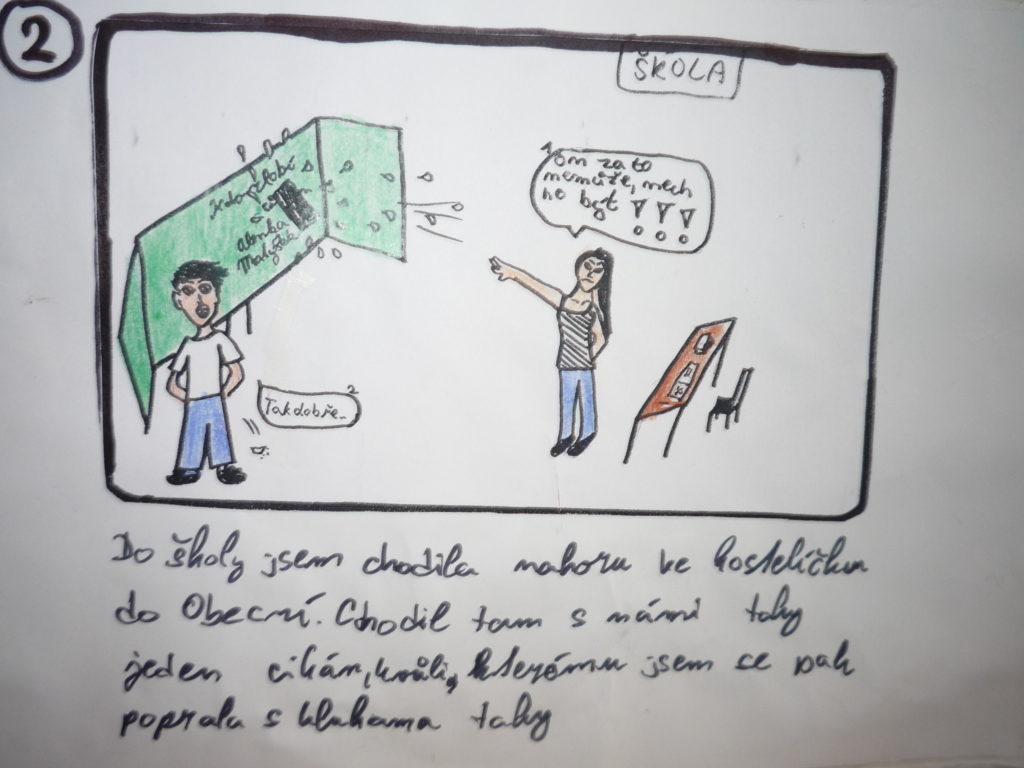 2
ŠKOLA
1
On za to
nemůže, nech
ho být !!!
Alenka
2
Tak dobře...
Do školy jsem chodila nahoru ke kosteličku
do Obecní. Chodil tam s námi taky
jeden cikán, kvůli kterému jsem se pak
poprala s klukama taky